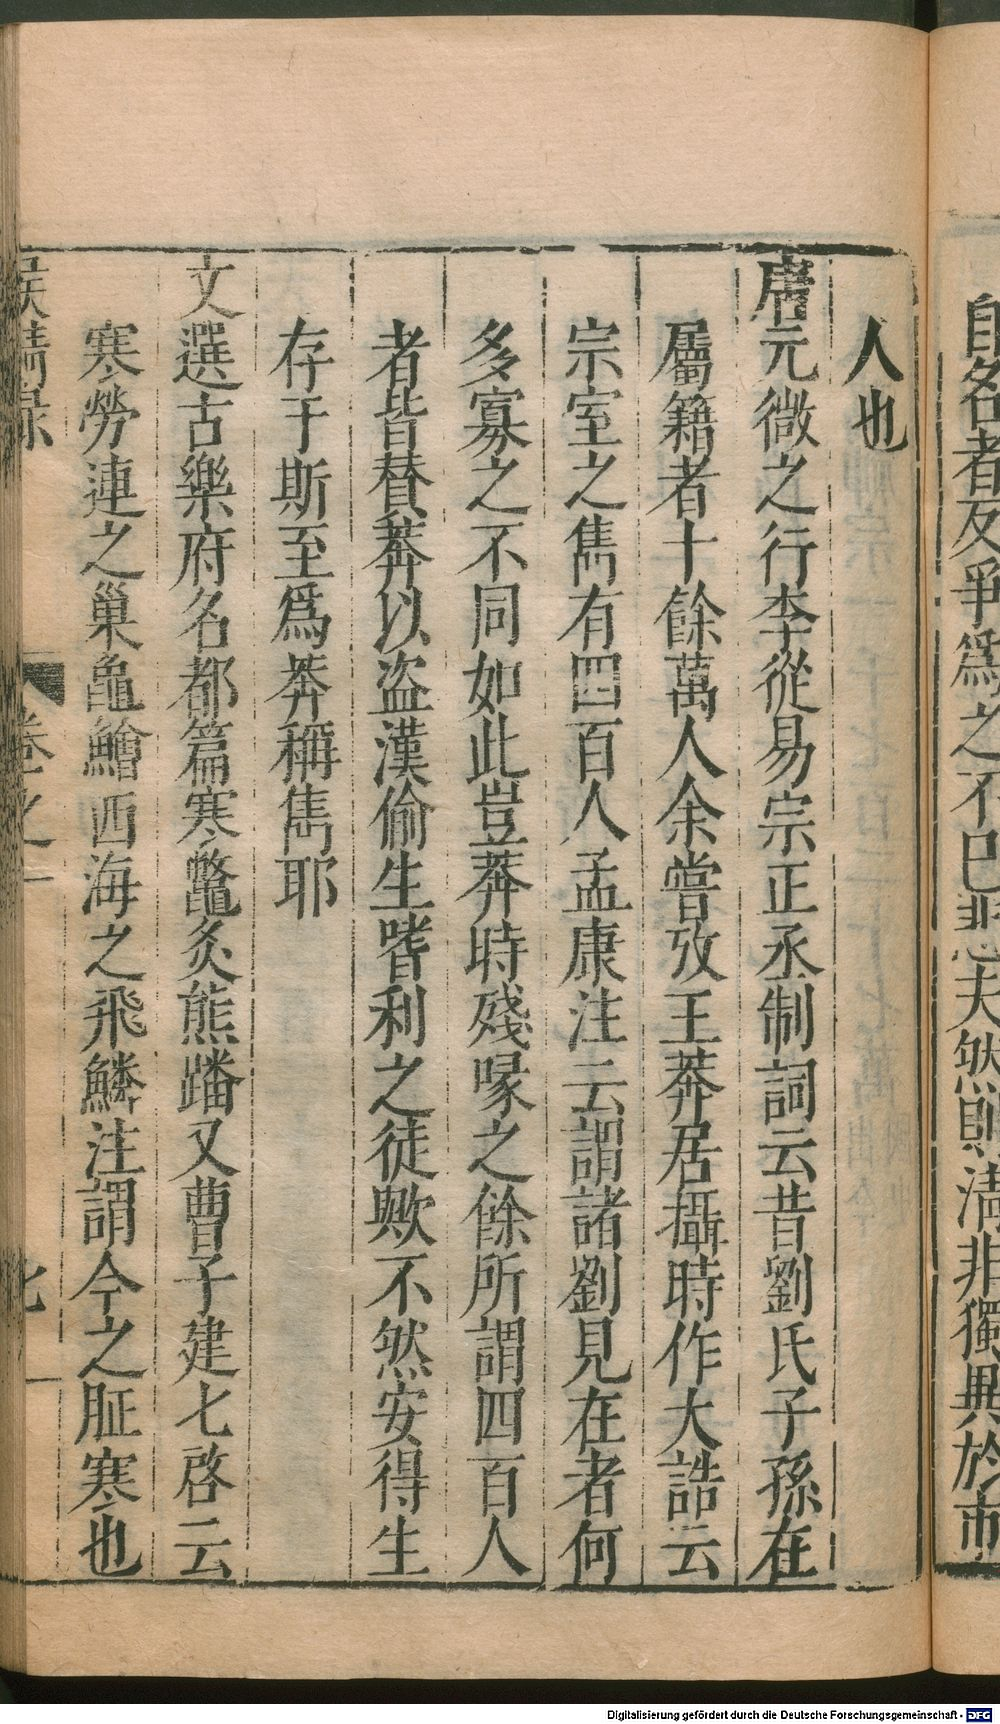 自名者反爭爲之不已悲夫然則清非獨興於市
人也
唐元微之行李從易宗正丞制詞云昔劉氏子孫在
屬籍者十餘萬人余嘗攷王莽居攝時作大誥云
宗室之儁有四百人孟康注云謂諸劉見在者何
多寡之不同如此豈莽時殘喙之餘所謂四百人
者皆賛莽以盗漢偷生嗜利之徒歟不然安得生
存于斯至爲莽稱儁耶
文選古樂府名都篇寒鼈炙熊蹯又曹子建七啓云
寒勞連之巢龜鱠西海之飛鱗注謂今之脠寒也
侯鯖錄 卷之一 七
Digitalisierung gefördert durch die Deutsche Forschungsgemeinschaft - DFG